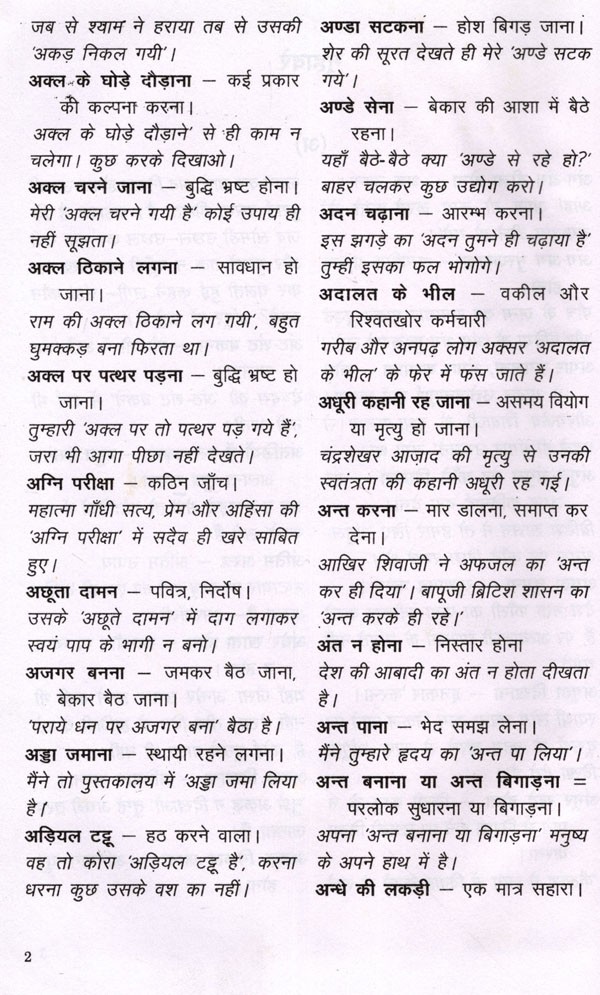 जब से श्याम ने हराया तब से उसकी
'अकड़ निकल गयी'।
अक्ल के घोड़े दौड़ाना – कई प्रकार
की कल्पना करना।
अक्ल के घोड़े दौड़ाने' से ही काम न
चलेगा। कुछ करके दिखाओ।
अक्ल चरने जाना – बुद्धि भ्रष्ट होना।
मेरी 'अक्ल चरने गयी है' कोई उपाय ही
नहीं सूझता।
अक्ल ठिकाने लगना – सावधान हो
जाना।
राम की अक्ल ठिकाने लग गयी', बहुत
घुमक्कड़ बना फिरता था।
अक्ल पर पत्थर पड़ना – बुद्धि भ्रष्ट हो
जाना।
तुम्हारी 'अक्ल पर तो पत्थर पड़ गये हैं',
जरा भी आगा पीछा नहीं देखते।
अग्नि परीक्षा – कठिन जाँच।
महात्मा गाँधी सत्य, प्रेम और अहिंसा की
'अग्नि परीक्षा' में सदैव ही खरे साबित
हुए।
अछूता दामन – पवित्र, निर्दोष।
उसके 'अछूते दामन' में दाग लगाकर
स्वयं पाप के भागी न बनो।
अजगर बनना – जमकर बैठ जाना,
बेकार बैठ जाना।
'पराये धन पर अजगर बना बैठा है'।
अड्डा जमाना – स्थायी रहने लगना।
मैंने तो पुस्तकालय में 'अड्डा जमा लिया
है'।
अड़ियल टट्टू – हठ करने वाला।
वह तो कोरा 'अड़ियल टट्टू है', करना
धरना कुछ उसके वश का नहीं।
अण्डा सटकना – होश बिगड़ जाना।
शेर की सूरत देखते ही मेरे 'अण्डे सटक
गये'।
अण्डे सेना – बेकार की आशा में बैठे
रहना।
यहाँ बैठे-बैठे क्या 'अण्डे से रहे हो?'
बाहर चलकर कुछ उद्योग करो।
अदन चढ़ाना – आरम्भ करना।
इस झगड़े का 'अदन तुमने ही चढ़ाया है'
तुम्हीं इसका फल भोगोगे।
अदालत के भील – वकील और
रिश्वतखोर कर्मचारी
गरीब और अनपढ़ लोग अक्सर 'अदालत
के भील' के फेर में फंस जाते हैं।
अधूरी कहानी रह जाना – असमय वियोग
या मृत्यु हो जाना।
चंद्रशेखर आज़ाद की मृत्यु से उनकी
स्वतंत्रता की कहानी अधूरी रह गई।
अन्त करना – मार डालना, समाप्त कर
देना।
आखिर शिवाजी ने अफजल का 'अन्त
कर ही दिया'। बापूजी ब्रिटिश शासन का
'अन्त करके ही रहे'।
अंत न होना – निस्तार होना
देश की आबादी का अंत न होता दीखता
है।
अन्त पाना – भेद समझ लेना।
मैंने तुम्हारे हृदय का 'अन्त पा लिया'।
अन्त बनाना या अन्त बिगाड़ना =
परलोक सुधारना या बिगाड़ना।
अपना 'अन्त बनाना या बिगाड़ना' मनुष्य
के अपने हाथ में है।
अन्धे की लकड़ी – एक मात्र सहारा।
2